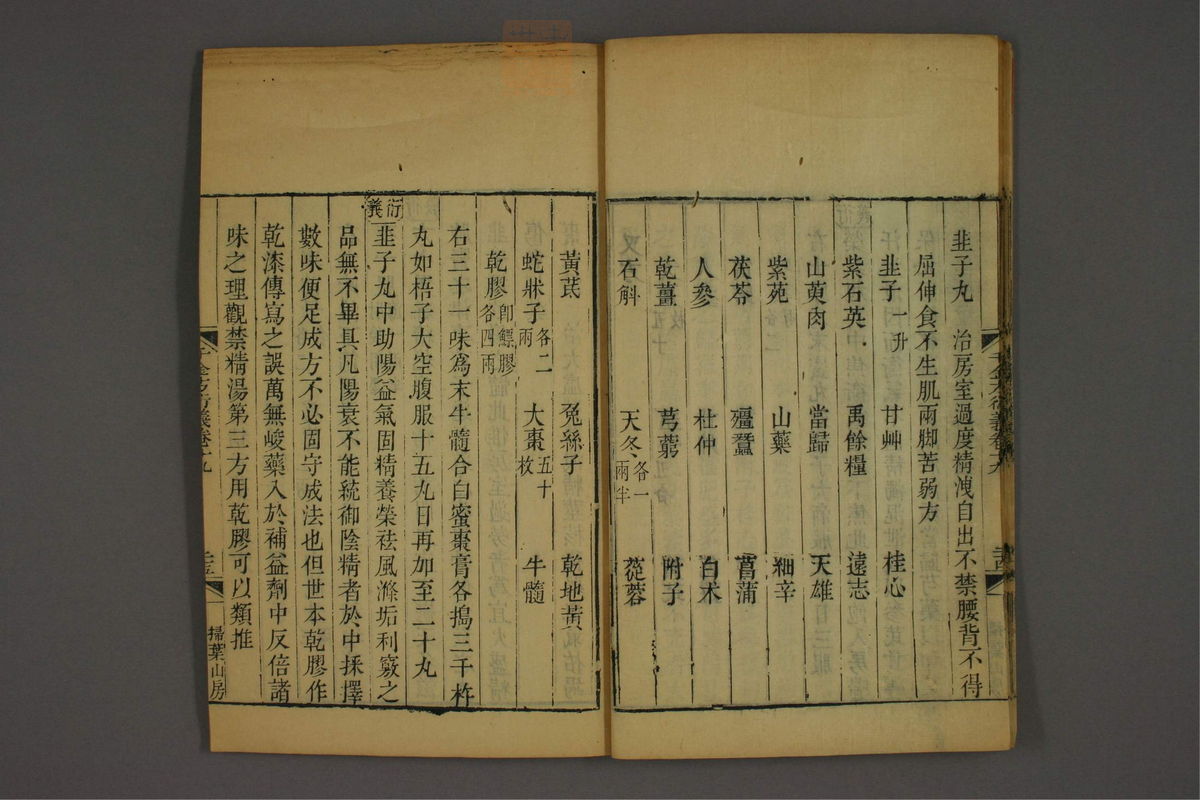 韭子丸　治房室過度精洩自出不禁腰背不得
屈伸食不生肌兩脚苦弱方
韭子一升　甘艸　桂心
紫石英　禹餘糧　遠志
山萸肉　當歸　天雄
紫菀　山藥　細辛
茯苓　殭蠶　菖蒲
人參　杜仲　白朮
乾薑　芎藭　附子
石斛　天冬各一兩半　蓯蓉
黃芪　兔絲子　乾地黃
蛇牀子各二兩　大棗五十枚　牛髓
乾膠卽鰾膠各四兩
右三十一味爲末牛髓合白蜜棗膏各搗三千杵
丸如梧子大空腹服十五丸日再加至二十丸
衍義
韭子丸中助陽益氣固精養榮祛風滌垢利竅之
品無不畢具凡陽衰不能統御陰精者於中揉擇
數味便足成方不必固守成法也但世本乾膠作
乾漆傳寫之誤萬無峻藥入於補益劑中反倍諸
味之理觀禁精湯第三方用乾膠可以類推
千金方衍義卷十九
掃葉山房